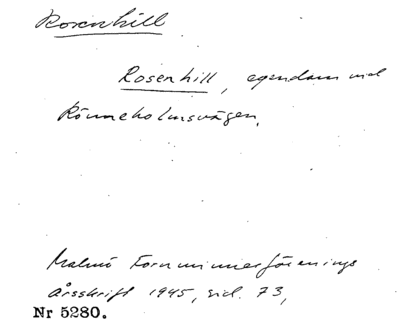 Rosenhill
Rosenhill, egendom vid
Rönneholmsvägen.
Malmö Fornminnesförenings
årsskrift 1945, sid. 73,
Nr 5280.